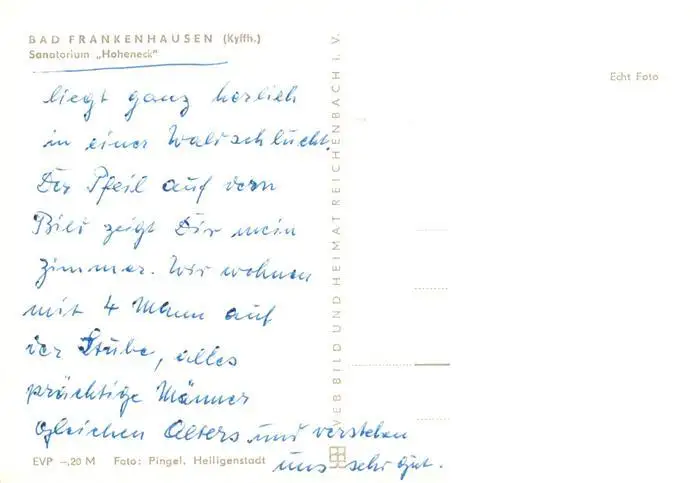 BAD FRANKENHAUSEN (Kyffh.)
Sanatorium „Hoheneck"
liegt ganz herlich
in einer Waldschlucht.
Der Pfeil auf dem
Bild zeigt Dir mein
Zimmer. Wir wohnen
mit 4 Mann auf
der Stube, alles
prächtige Männer
gleichen Alters und verstehen
uns sehr gut.
EVP –,20 M Foto: Pingel, Heiligenstadt
VEB BILD UND HEIMAT REICHENBACH i. V.
Echt Foto